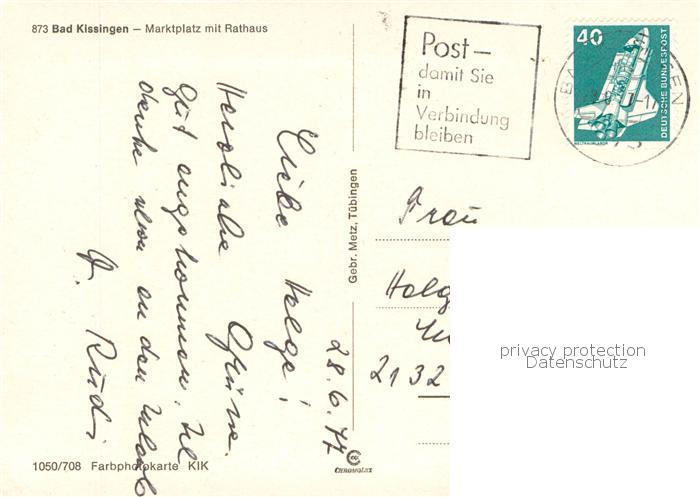 873 Bad Kissingen – Marktplatz mit Rathaus
28.6.77
Liebe Helga!
Herzliche Grüße.
Gut angekommen. Ich
denke schon an den Urlaub
Rudi
1050/708 Farbphotokarte KIK
Gebr. Metz, Tübingen
CHROMOLUX
Post –
damit Sie
in
Verbindung
bleiben
40
DEUTSCHE BUNDESPOST
WELTRAUMLABOR
Frau
Helg
2132
privacy protection
Datenschutz